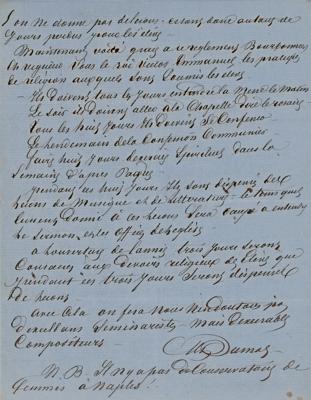 l'on ne donne pas de leçons. ce sont donc autant de
Jours perdus pour les élèves
Maintenant voici grace à ce reglement Bourbonien
en vigueur sous le roi Victor Emmanuel les pratiques
de religion auxquels sont soumis les élèves
Ils doivent tous les Jours entendre la Messe le Matin
Le soir ils doivent aller à la Chapelle dire le rosaire
tous les huit Jours Ils doivent Se Confesser
le lendemain de la Confession Communier
huit Jours Spirituels dans la
Semaine d'après Paques
pendant ces huit Jours Ils sont dispensés des
leçons de Musique et de Litterature. le tems que
à ces leçons Sera à entendre
le Sermon et les offices de l'eglise
à l'ouverture de l'année trois Jours Seront
Consacrés aux devoirs religieux de sorte que
pendant ces trois Jours Seront dispensés
de leçons
Avec cela on fera nous n'en doutons pas
d'excellents Seminaristes Mais d'execrables
Compositeurs
Alx Dumas
N.B. Il n'y a pas de Conservatoire de
femmes à Naples